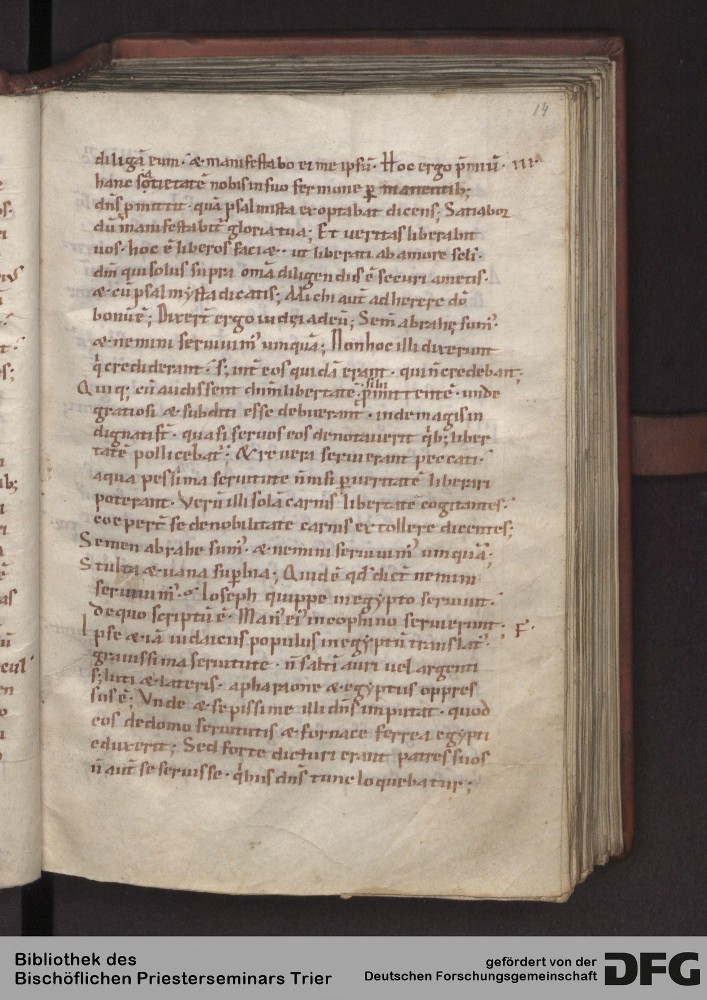 14
diligā eum · & manifestabo ei me ipsū · Hoc ergo p̄miū ·
hanc sotietatē nobis in suo sermone ꝑmanentib;
dn̄s ꝓmittit · quā psalmista exoptabat dicens; Satiabor
dū manifestabit᷑ gloria tua; Et veritas liberabit
uos · hoc ē liberos faciæ · ut liberati ab amore sc̄li ·
dn̄m qui solus supra om̄a diligendus ē securi ametis ·
& cū psalmysta dicatis; Michi aut̄ adherere dō
bonū ē; Dixer̄t ergo iudęi ad eū; Sem̄ abrahę sum᷒ ·
& nemini seruiuim᷒ umquā; Non hoc illi dixerunt
q̇ crediderant · s; int̄ eos quidā erant · qui n̄ credebant ·
Qui q; cū audissent dn̄m libertatē sibi ꝓmittentē · unde
gratiosi & subditi esse debuerant · inde magis in
dignati st̄ · quasi seruos eos denotauerit q̇b; liber
tatē pollicebat᷑ · & re uera seruierant peccati ·
a qua pessima seruitute n̄ nisi ꝑ ueritatē liberari
poterant · Verū illi solā carnis libertatē cogitantes ·
coeper̄t se de nobilitate carnis extollere dicentes;
Semen abrahe sum᷒ · & nemini seruiuim᷒ umquā;
Stulta & uana suꝑbia; Quid ē qd̄ dic̄t nemini
seruiuim᷒ · Ioseph quippe in egypto seruiuit ·
De quo scriptū ē · Man᷒ ei᷒ in cophino seruierunt ·
Ipse & iā iudaicus populus in egyptū translat᷒ ·
grauissima seruitute · n̄ saltī auri uel argenti
s; luti & lateris · a pharaone & egyptus oppres
sus ē; Vnde & sepissime illi dn̄s imputat · quod
eos de domo seruitutis & fornace ferrea egypti
eduxerit; Sed forte dicturi erant patres suos
n̄ aut̄ se seruisse · q̇bus dn̄s tunc loquebatur;
Bibliothek des
Bischöflichen Priesterseminars Trier
gefördert von der
Deutschen Forschungsgemeinschaft
DFG